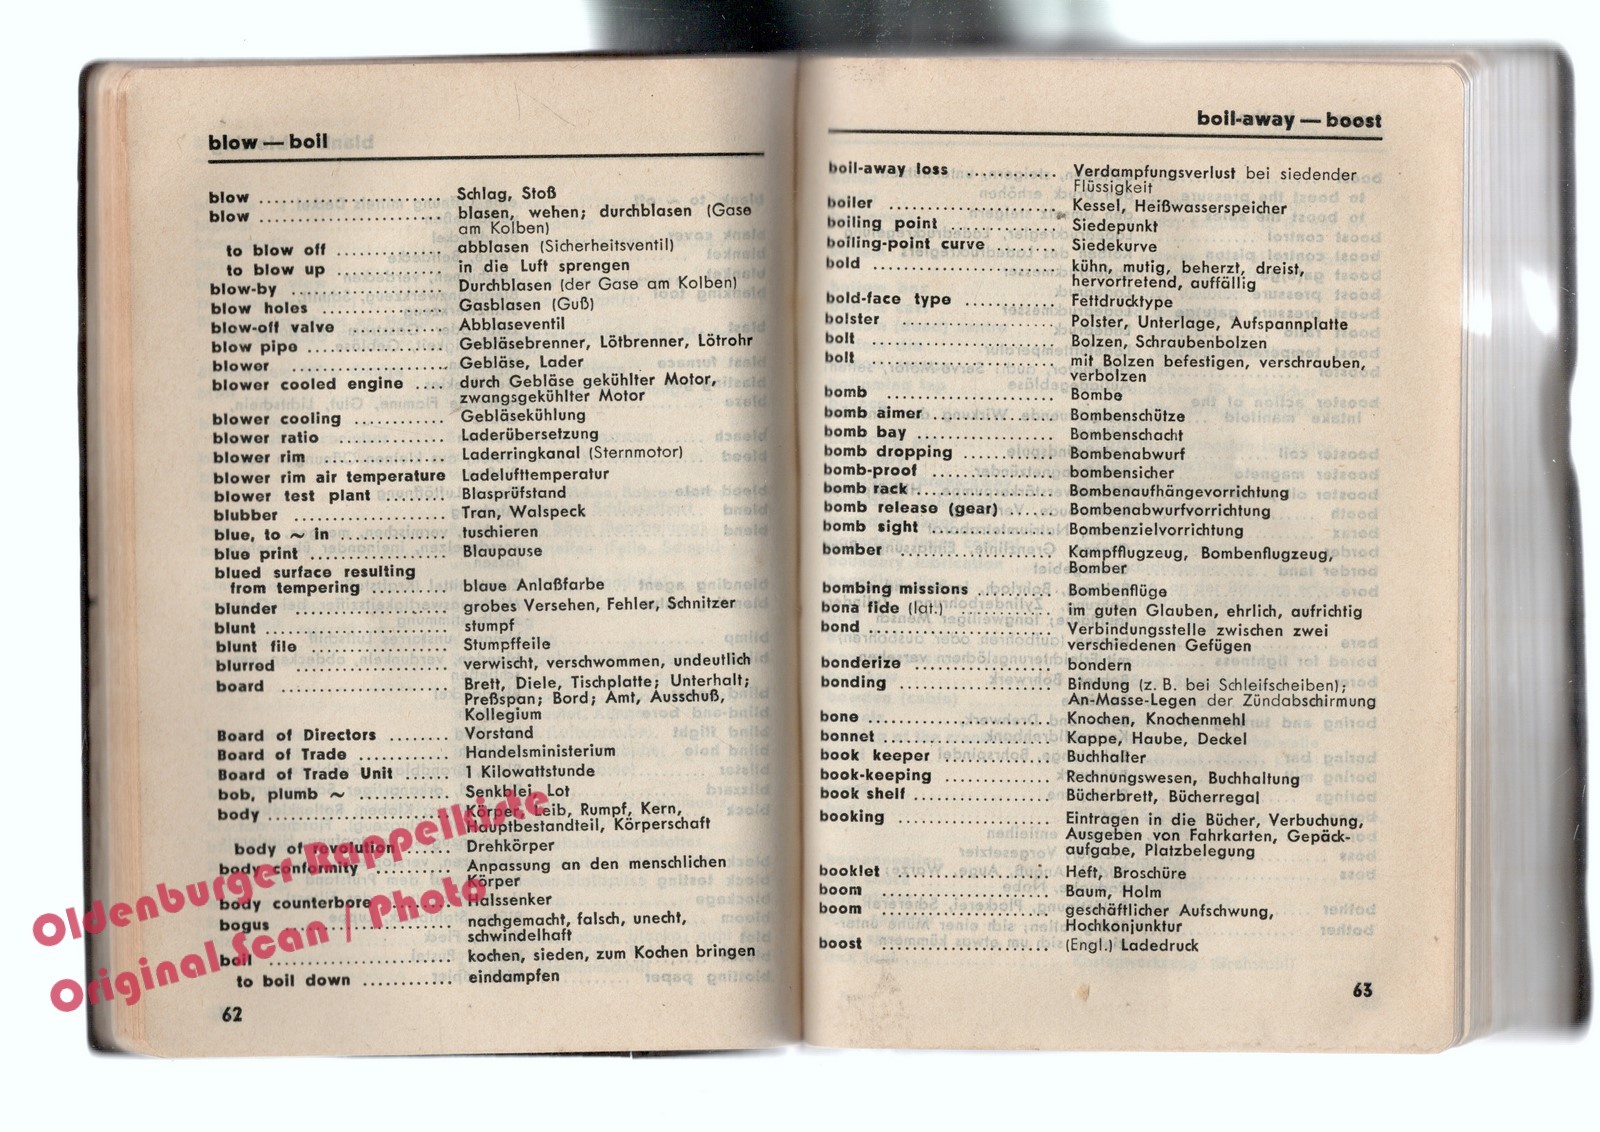 blow — boil
blow ........................ Schlag, Stoß
blow ........................ blasen, wehen; durchblasen (Gase
am Kolben)
to blow off .............. abblasen (Sicherheitsventil)
to blow up .............. in die Luft sprengen
blow-by .................... Durchblasen (der Gase am Kolben)
blow holes ................ Gasblasen (Guß)
blow-off valve ............ Abblaseventil
blow pipe .................. Gebläsebrenner, Lötbrenner, Lötrohr
blower ..................... Gebläse, Lader
blower cooled engine .... durch Gebläse gekühlter Motor,
zwangsgekühlter Motor
blower cooling ............ Gebläsekühlung
blower ratio ............... Laderübersetzung
blower rim ................ Laderringkanal (Sternmotor)
blower rim air temperature Ladelufttemperatur
blower test plant ......... Blasprüfstand
blubber .................... Tran, Walspeck
blue, to ~ in .............. tuschieren
blue print .................. Blaupause
blued surface resulting
from tempering .......... blaue Anlaßfarbe
blunder .................... grobes Versehen, Fehler, Schnitzer
blunt ........................ stumpf
blunt file .................. Stumpffeile
blurred .................... verwischt, verschwommen, undeutlich
board ...................... Brett, Diele, Tischplatte; Unterhalt;
Preßspan; Bord; Amt, Ausschuß,
Kollegium
Board of Directors ........ Vorstand
Board of Trade ............ Handelsministerium
Board of Trade Unit ...... 1 Kilowattstunde
bob, plumb ~ ............ Senkblei, Lot
body ........................ Körper, Leib, Rumpf, Kern,
Hauptbestandteil, Körperschaft
body of revolution ...... Drehkörper
body conformity .......... Anpassung an den menschlichen
Körper
body counterbore ........ Halssenker
bogus ...................... nachgemacht, falsch, unecht,
schwindelhaft
boil ......................... kochen, sieden, zum Kochen bringen
to boil down ............ eindampfen
62
boil-away — boost
boil-away loss ............ Verdampfungsverlust bei siedender
Flüssigkeit
boiler ...................... Kessel, Heißwasserspeicher
boiling point .............. Siedepunkt
boiling-point curve ........ Siedekurve
bold ........................ kühn, mutig, beherzt, dreist,
hervortretend, auffällig
bold-face type ............ Fettdrucktype
bolster .................... Polster, Unterlage, Aufspannplatte
bolt ........................ Bolzen, Schraubenbolzen
bolt ........................ mit Bolzen befestigen, verschrauben,
verbolzen
bomb ...................... Bombe
bomb aimer ................ Bombenschütze
bomb bay .................. Bombenschacht
bomb dropping ............ Bombenabwurf
bomb-proof ................ bombensicher
bomb rack .................. Bombenaufhängevorrichtung
bomb release (gear) ...... Bombenabwurfvorrichtung
bomb sight ................ Bombenzielvorrichtung
bomber .................... Kampfflugzeug, Bombenflugzeug,
Bomber
bombing missions .......... Bombenflüge
bona fide (lat.) ............ im guten Glauben, ehrlich, aufrichtig
bond ........................ Verbindungsstelle zwischen zwei
verschiedenen Gefügen
bonderize .................. bondern
bonding .................... Bindung (z. B. bei Schleifscheiben);
An-Masse-Legen der Zündabschirmung
bone ........................ Knochen, Knochenmehl
bonnet ...................... Kappe, Haube, Deckel
book keeper .............. Buchhalter
book-keeping .............. Rechnungswesen, Buchhaltung
book shelf .................. Bücherbrett, Bücherregal
booking .................... Eintragen in die Bücher, Verbuchung,
Ausgeben von Fahrkarten, Gepäck-
aufgabe, Platzbelegung
booklet .................... Heft, Broschüre
boom ...................... Baum, Holm
boom ...................... geschäftlicher Aufschwung,
Hochkonjunktur
boost ...................... (Engl.) Ladedruck
63
Oldenburger Rappelkiste
Original Scan / Photo